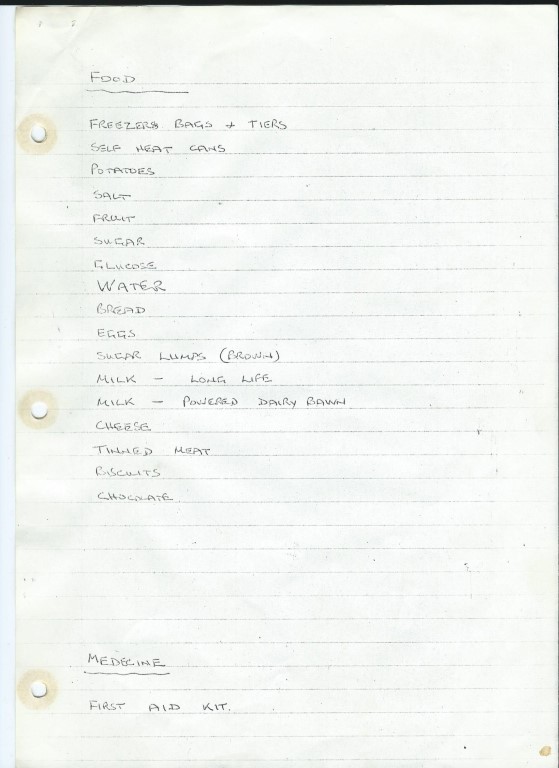 FOOD
FREEZERS BAGS + TIERS
SELF HEAT CANS
POTATOES
SALT
FRUIT
SUGAR
GLUCOSE
WATER
BREAD
EGGS
SUGAR LUMPS (BROWN)
MILK - LONG LIFE
MILK - POWERED DAIRY BAWN
CHEESE
TINNED MEAT
BISCUITS
CHOCLATE
MEDECINE
FIRST AID KIT.